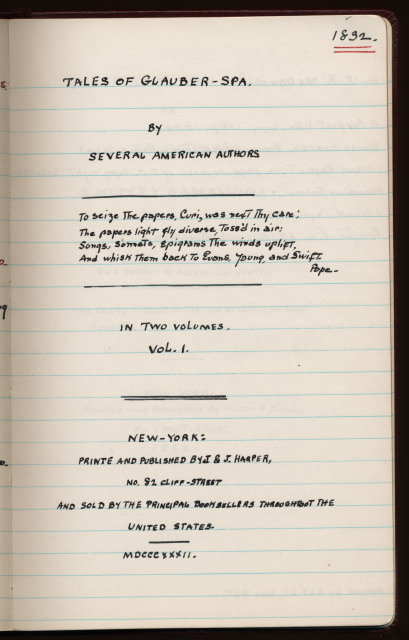 1832.
TALES OF GLAUBER-SPA.
BY
SEVERAL AMERICAN AUTHORS
To seize The papers, Curl, was next Thy care;
The papers light fly diverse, Toss'd in air:
Songs, sonnets, epigrams The winds uplift,
And whisk Them back To Evans, Young, and Swift.
Pope-
IN TWO VOLUMES.
VOL. I.
NEW-YORK:
PRINTE AND PUBLISHED BY J & J. HARPER,
NO. 82 CLIFF-STREET
AND SOLD BY THE PRINCIPAL BOOKSELLERS THROUGHTOUT THE
UNITED STATES.
MDCCCXXXII.